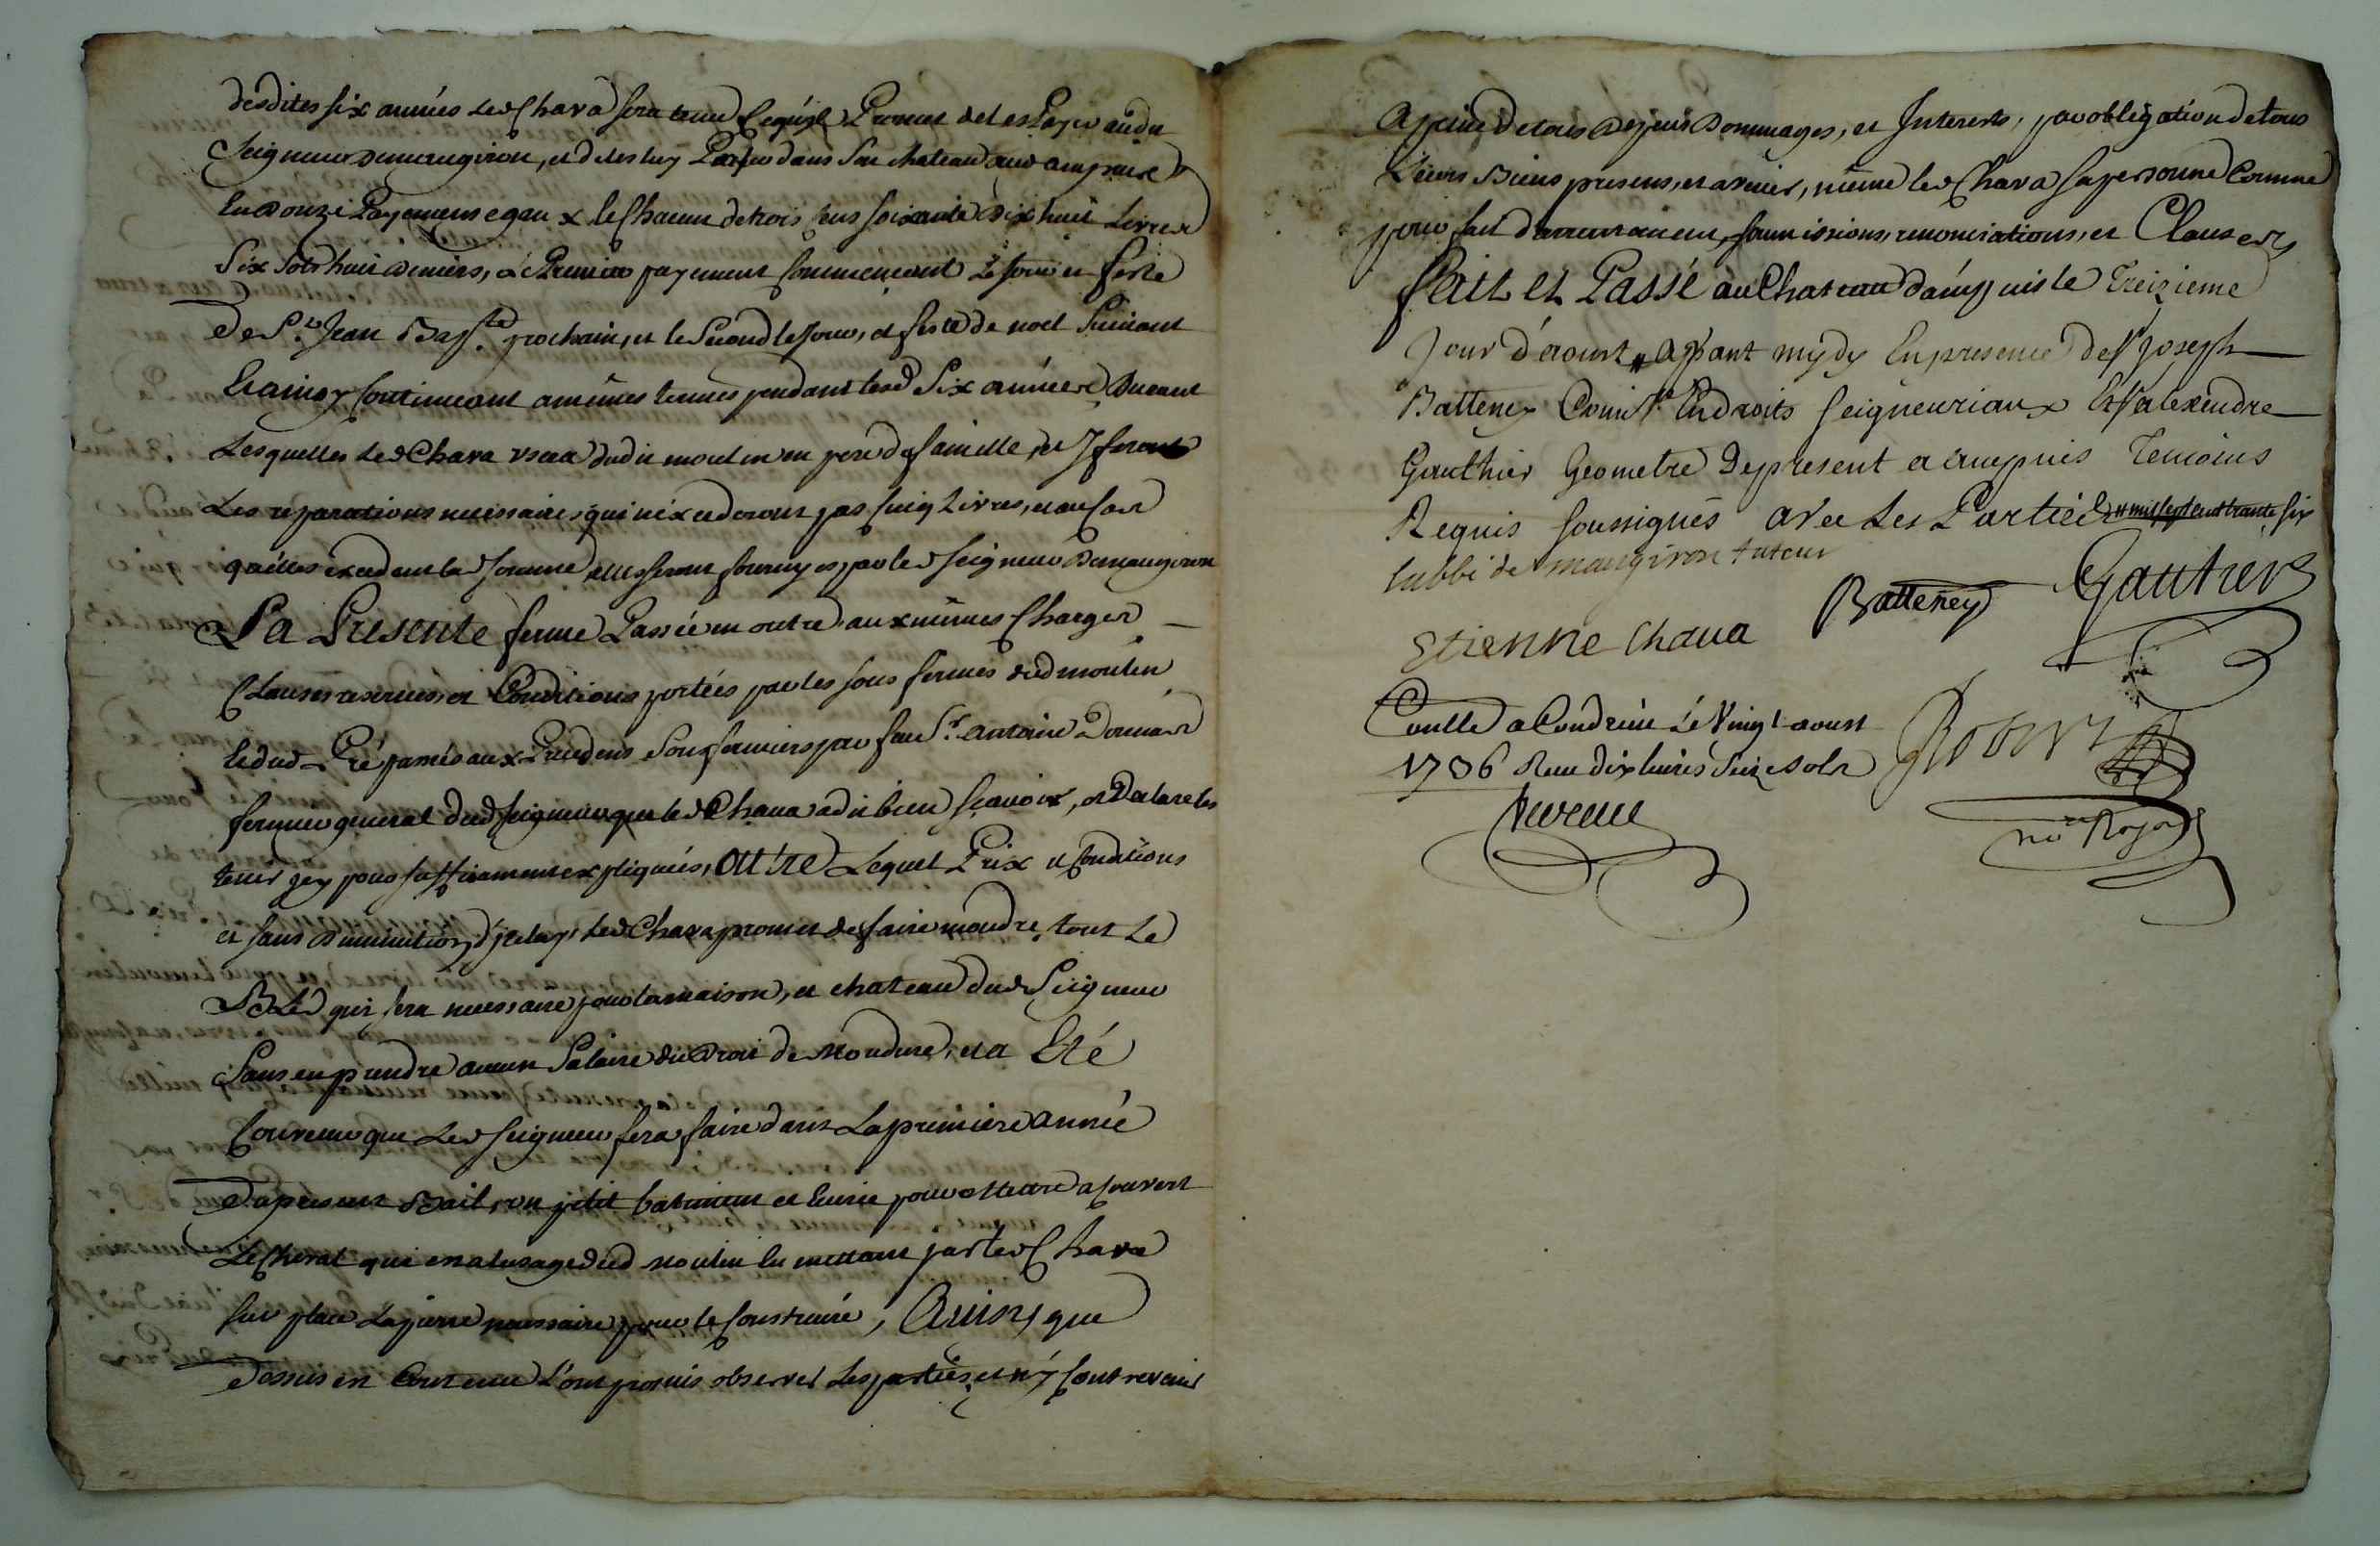 desdites six années led Chava sera tenu ce quyl Promet de les Payer audit
Seigneur de maugiron, et de les luy Porter dans son chateau aud ampuis
En Douze Payemens egaux de Chacun de trois cens soixante dix huit Livres
Six sols huit deniers, Le Premier payement Commencant Le Jour et feste
De St. Jean Bapte. prochain, et le Second le Jour, et feste de noel Suivant
Et ainsy Continuant a mêmes termes pendant lesd Six années Durant
Lesquelles led Chava usera dudit moulin en pere de famille, et y fera
Les reparations necessaires qui n'excederont pas Cinq Livres, et au Cas
qu'elles excedent la somme elles seront fournyes par led seigneur Demaugiron
La Presente ferme Passée en outre aux mêmes Charges
Clauses reserves, et Conditions portées par les sous fermes dud moulin
et dud Pré passés aux Precedens Sousfermiers par feu Sr. antoine Dumas
fermier general dud seigneur que led Chava a dit bien sçavoir, et Declare les
tenir jcy pour suffisamment expliqués, Outre Lequel Prix et Conditions
et sans Diminution d'jceluy, led Chava promet de faire moudre tout Le
BLed qui sera necessaire pour la maison, et chateau dud Seigneur
Sans en prendre aucun Salaire du Droit de Moudure, et a Eté
Convenu que Led seigneur fera faire dans La premiere année
Du present Bail, un petit batiment et Ecurie pour Mettre a Couvert
Le Cheval qui est a l'usage dud Moulin En mettant par led Chava
sur place La pierre necessaire pour le Construire, Ainsy que
Dessus est Convenu L'ont promis observer Les parties, et n'y Contrevenir
A peine De tous Depens Dommages, et Interests, par obligation de tous
Leurs Biens presens, et avenir, même led Chava sa personne Comme
pour fait soumissions, renonciations, et Clauses
fait et Passé au Chateau d'ampuis le Treizieme
Jour d'aoust # appant mydy En presence de sr Joseph
Batteney Commre. En droits seigneuriaux Et sr alexendre
Gauthier Geometre De present a ampuis Temoins
Requis soussignés avec Les Parties # mil sept cent trante six
Labbé de maugiron tuteur
Gautier
Batteney
Etienne Chava
Conllé a Condrieu Le Vingt aoust
1736 Reçu dix livres Seize sols
Robert
nore Royal